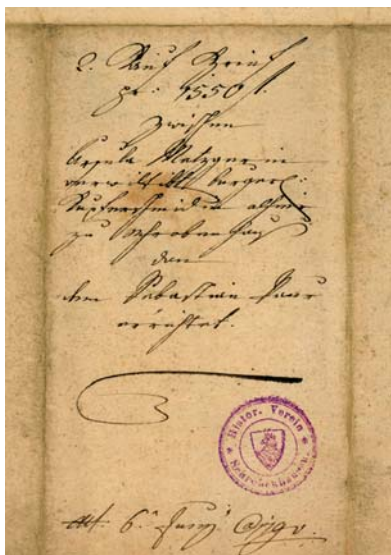 2. Kauf Brief
pr: 4550 f.
zwischen
Ursula Metzgerin
verwittibt burgerl:
Kupferschmidin alhier
zu Schrobenhaus
dan
dem Sebastian Paur
errichtet.
Histor. Verein
Schrobenhausen.
6. Juny